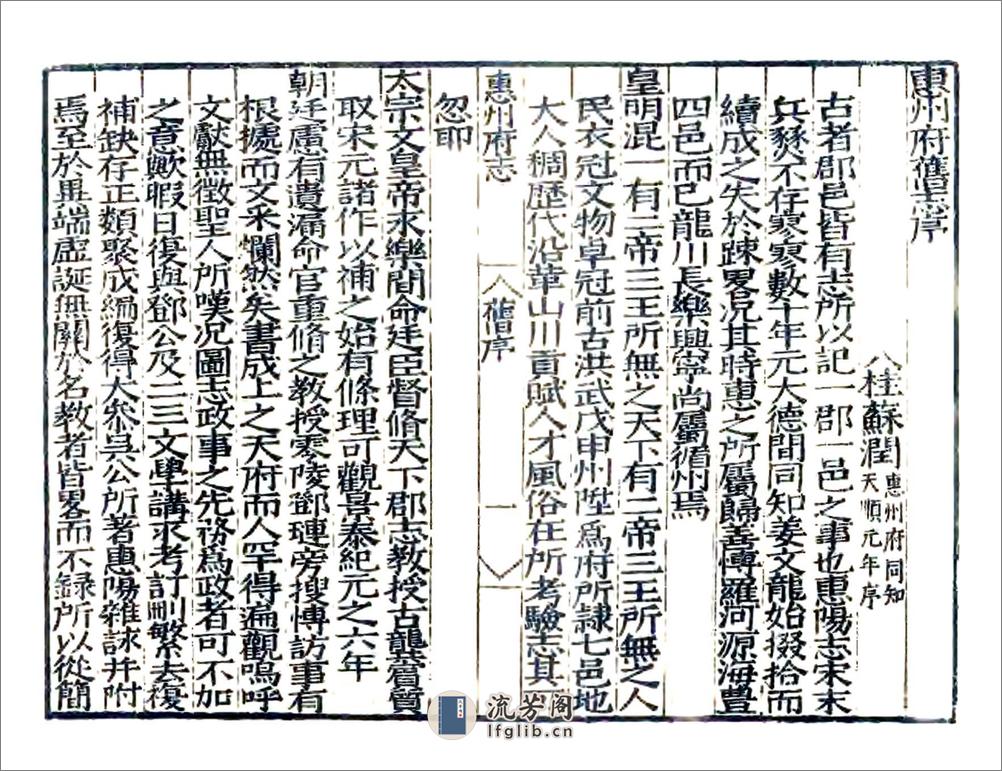 惠州府舊志序
八桂蘇潤惠州府同知天順元年序
古者郡邑皆有志所以記一郡一邑之事也惠陽志宋末
兵燹不存寥寥數十年元大德間同知姜文龍始掇拾而
續成之失於踈畧况其時惠之所屬歸善博羅河源海豊
四邑而已龍川長樂興寧尚屬循州焉
皇明混一有二帝三王所無之天下有二帝三王所無之人
民衣冠文物卓冠前古洪武戊申州陞爲府所隷七邑地
大人稠歷代沿革山川貢賦人才風俗在所考驗志其
惠州府志
舊序
一
忽耶
太宗文皇帝永樂間命廷臣督脩天下郡志教授古龔霫質
取宋元諸作以補之始有條理可觀景泰紀元之六年
朝廷慮有遺漏命官重脩之教授零陵鄧璉旁搜博訪事有
根據而文釆爛然矣書成上之天府而人罕得遍觀嗚呼
文獻無徵聖人所嘆况圖志政事之先務爲政者可不加
之意歟暇日復與鄧公及二三文學講求考訂刪繁去復
補缺存正類聚成編復得大叅吳公所著惠陽雜詠并附
焉至於異端虛誕無關於名教者皆畧而不録所以從簡
流芳阁
lfglib.cn